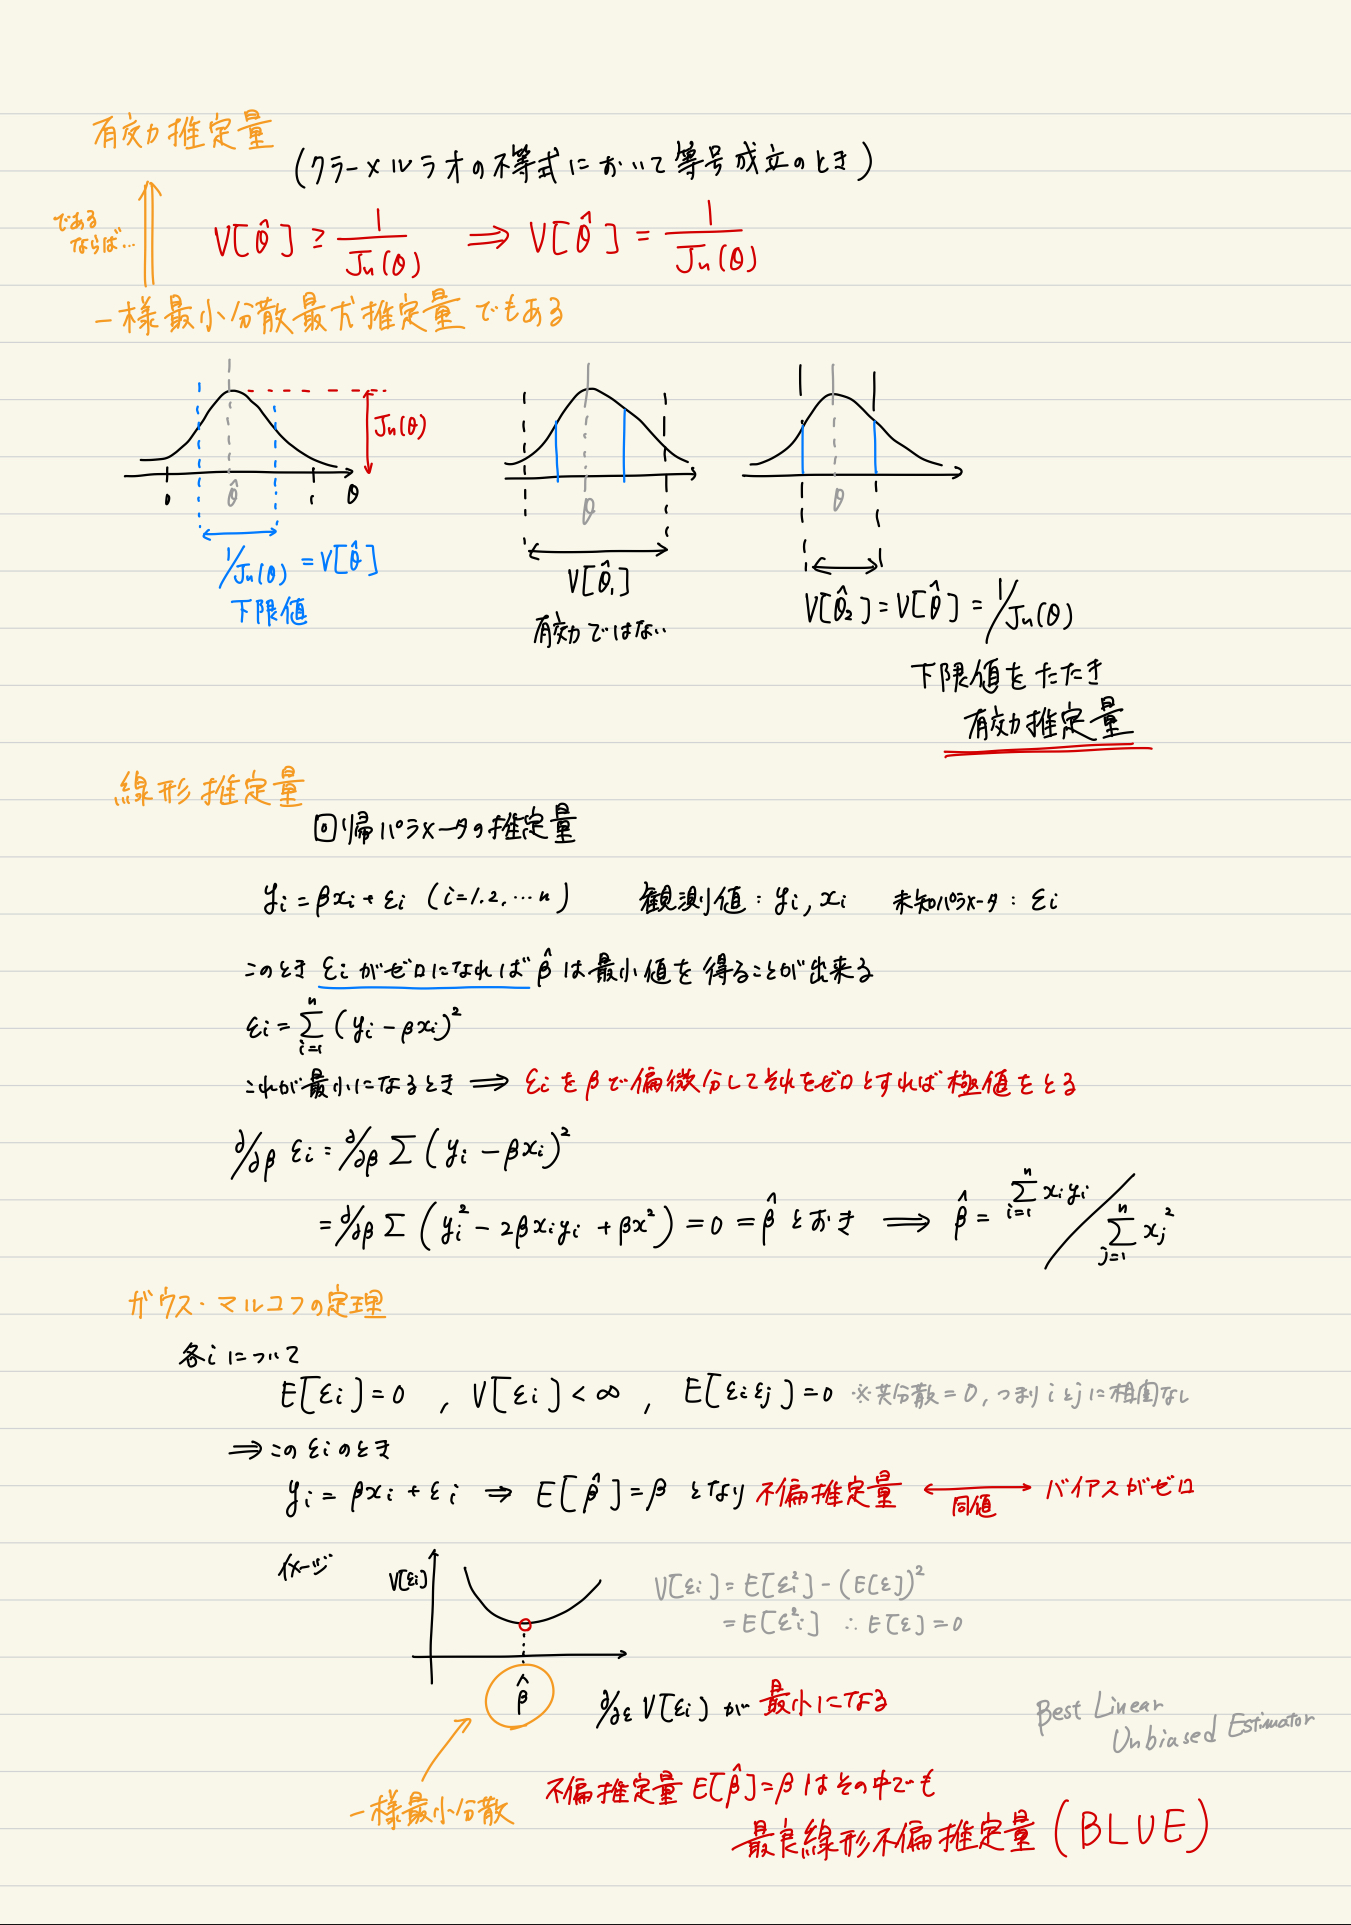 有効推定量
(クラーメルラオの不等式において等号成立のとき)
である
ならば…
V[θ̂] ≥ 1/Jn(θ) ⇒ V[θ̂] = 1/Jn(θ)
一様最小分散最尤推定量でもある
Jn(θ)
0 θ̂ 1 θ
1/Jn(θ) = V[θ̂]
下限値
θ
V[θ̂₁]
有効ではない
θ
V[θ̂₂] = V[θ̂] = 1/Jn(θ)
下限値をたたき
有効推定量
線形推定量
回帰パラメータの推定量
yi = βxi + εi (i=1.2.…n) 観測値: yi, xi 未知パラメータ: εi
このとき εiがゼロになれば β̂は最小値を得ることが出来る
εi = Σ_{i=1}^{n} (yi - βxi)²
これが最小になるとき ⇒ εiをβで偏微分してそれをゼロとすれば極値をとる
∂/∂β εi = ∂/∂β Σ (yi - βxi)²
= ∂/∂β Σ (yi² - 2βxiyi + βx²) = 0 = β̂とおき ⇒ β̂ = Σ_{i=1}^{n} xiyi / Σ_{j=1}^{n} xj²
ガウス・マルコフの定理
各iについて
E[εi] = 0 , V[εi] < ∞ , E[εiεj] = 0 ※共分散=0, つまりiとjに相関なし
⇒ このεiのとき
yi = βxi + εi ⇒ E[β̂] = β となり 不偏推定量 ⟷ バイアスがゼロ
同値
イメージ
V[εi]
V[εi] = E[εi²] - (E[ε])²
= E[εi²] ∴ E[ε] = 0
β̂
∂/∂ε V[εi] が 最小になる
Best Linear
Unbiased Estimator
一様最小分散
不偏推定量 E[β̂] = β はその中でも
最良線形不偏推定量 (BLUE)